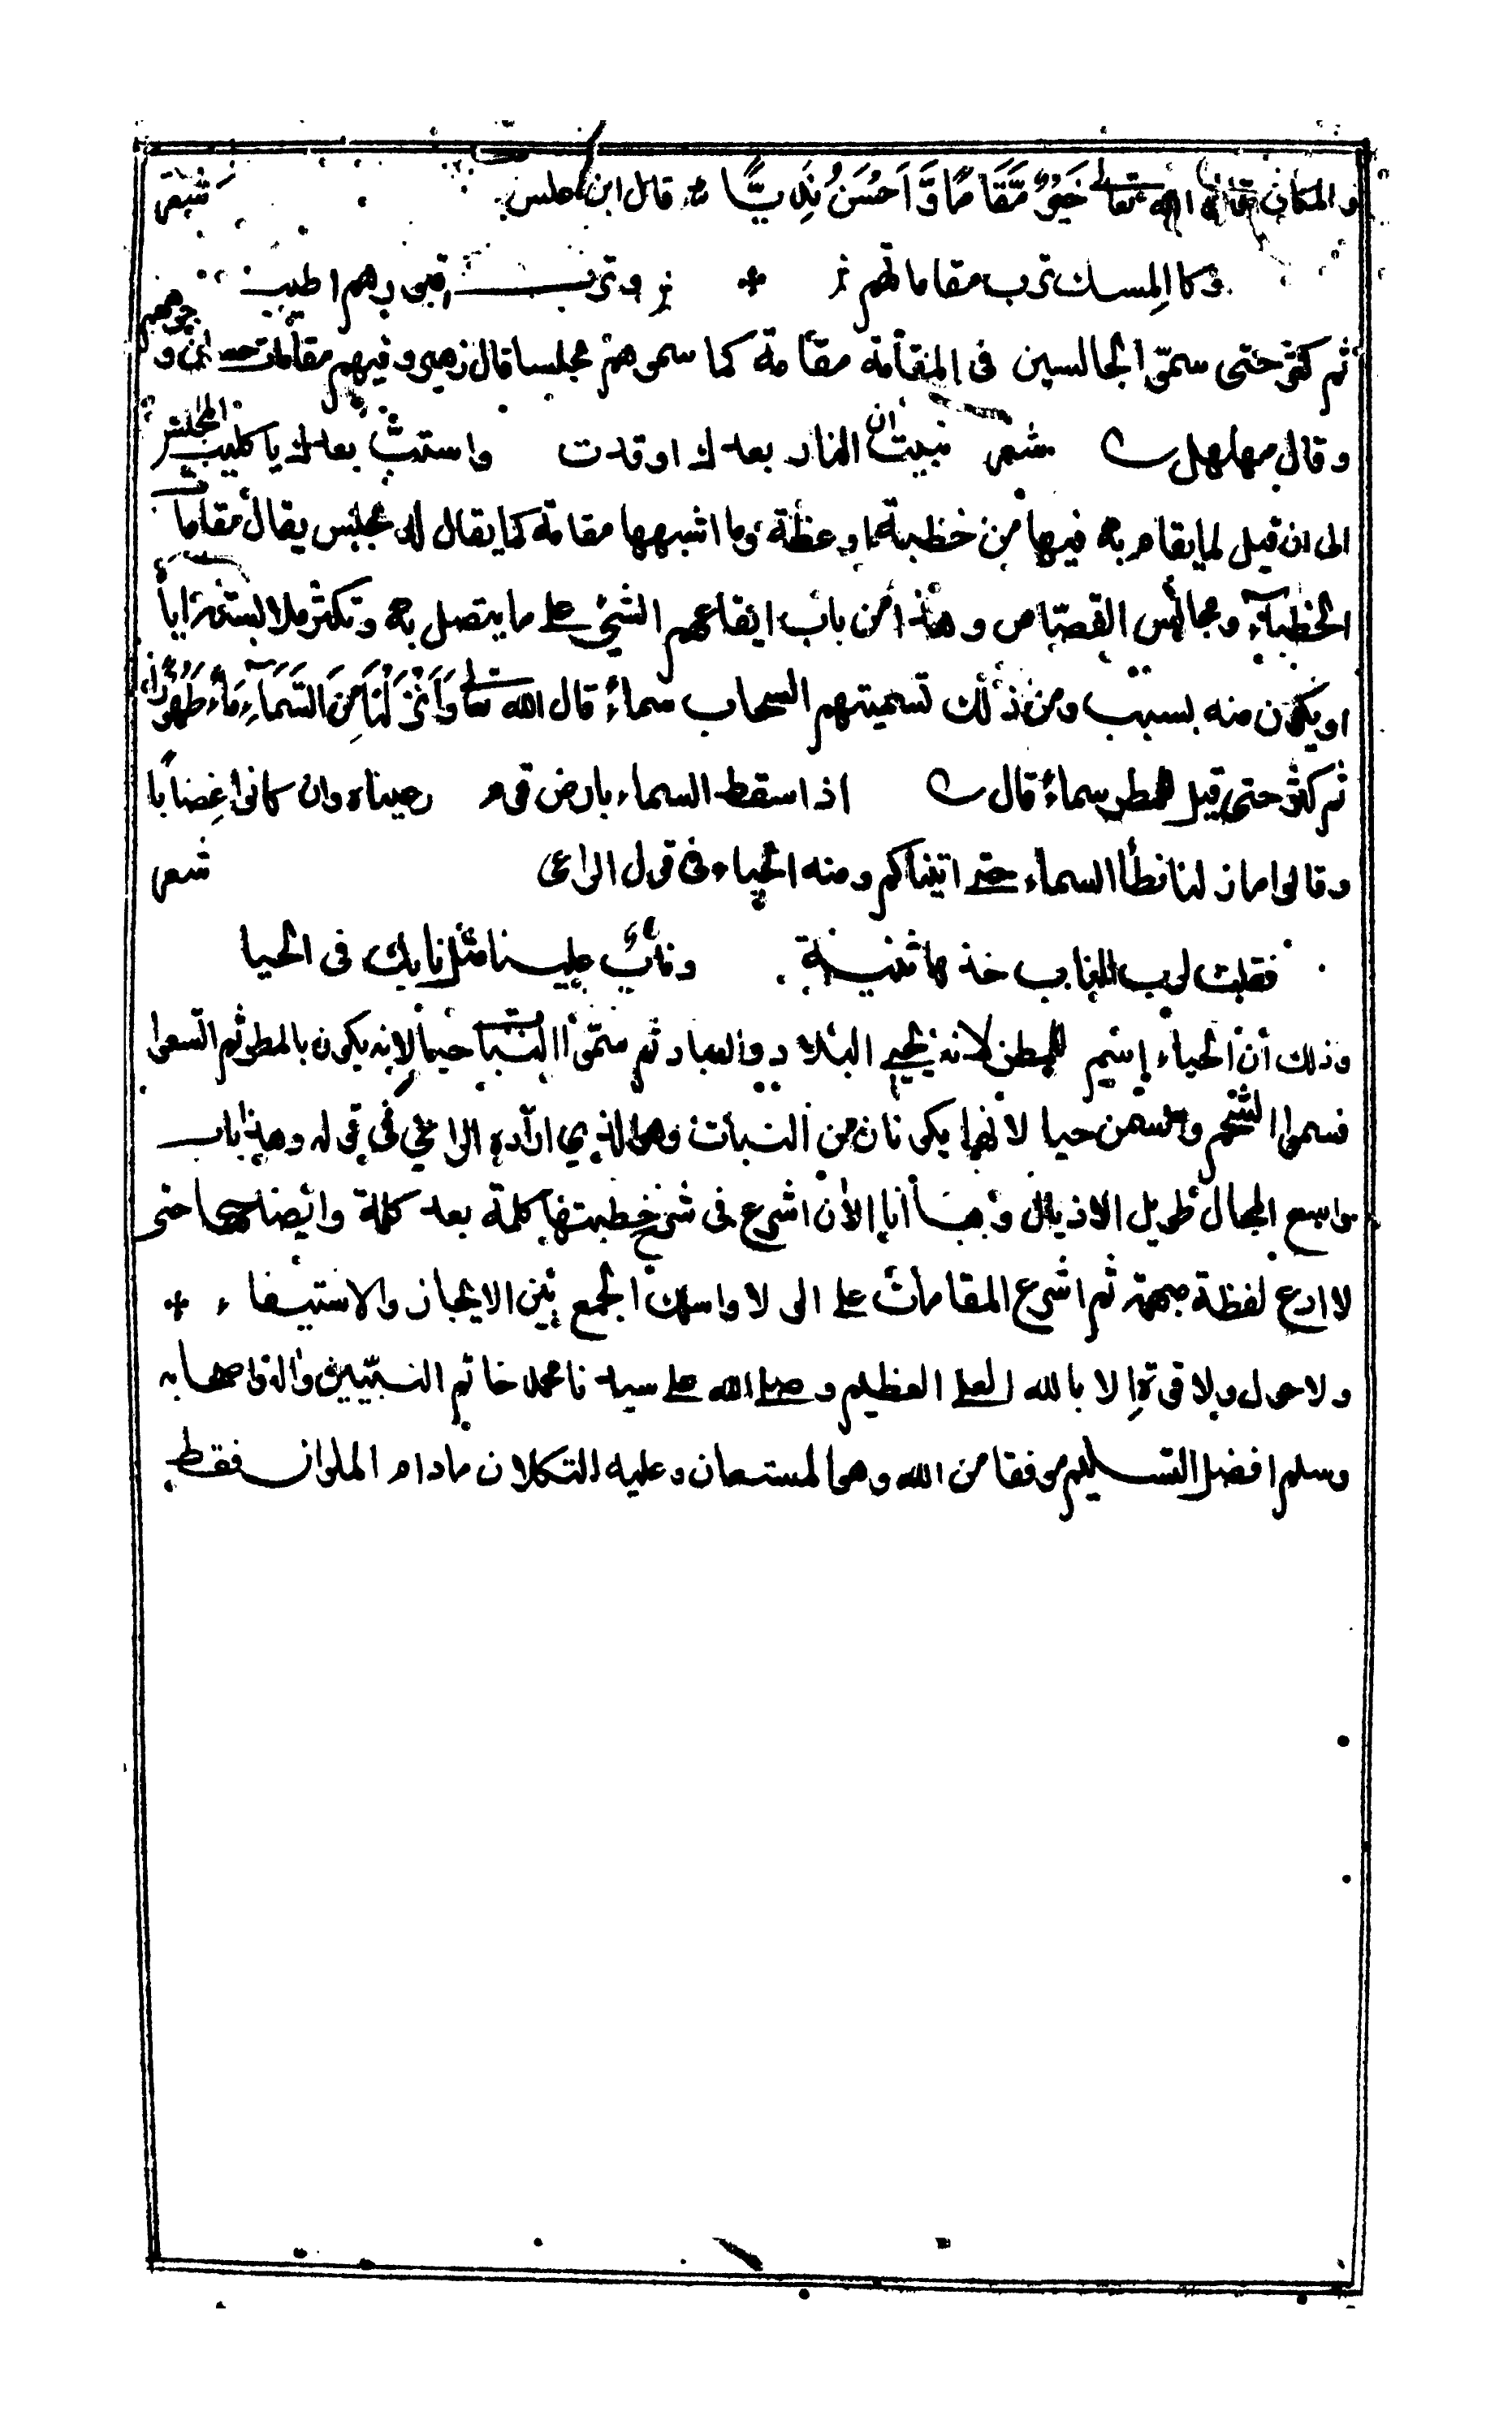 والمكان قال الله تعالى خَيْرٌ مَّقَامًا وَّاَحْسَنُ نَدِيًّا قال ابن علس شعر
وكالمسك ترب مقاماتهم * وترب قبورهم اطيب
ثم كثر حتى سمّوا الجالسين فى المقامة مقامة كما سموهم مجلسا قال زهير وفيهم مقامات حسان وجوههم
وقال مهلهل شعر نبيت ان النار بعدك اوقدت واستب بعدك يا كليب المجلس
الى ان قيل لما يقام به فيها من خطبة او عظة وما اشبهها مقامة كما يقال له مجلس يقال مقامات
الخطباء ومجالس القصّاص وهذا من باب ايقاعهم الشئ على ما يتصل به وتكثر ملابسته اياه
او يكون منه بسبب ومن ذلك تسميتهم السحاب سماء قال الله تعالى وَاَنْزَلْنَا مِنَ السَّمَاءِ مَاءً طَهُوْرًا
ثم كثر حتى قيل للمطر سماء قال اذا سقط السماء بارض قوم رعيناه وان كانوا غضابا
وقالوا ما زلنا نطأ السماء حتى اتيناكم ومنه الحياء فى قول الراعى شعر
فقلت لرب الناب خذها ثنية وناب علينا مثل نابك فى الحيا
وذلك ان الحياء اسم للمطر لانه يحيى البلاد والعباد ثم سمّوا النبات حيا لانه يكون بالمطر ثم اتسعوا
فسموا الشحم والسمن حيا لانهما يكونان من النبات وهو الذى اراده الراعى فى قوله وهذا باب
واسع المجال طويل الاذيال وها انا الان اشرع فى شرح خطبتها كلمة بعد كلمة وايضاحها حتى
لا ادع لفظة مبهمة ثم اشرع المقامات على الولا واسلك الجمع بين الايجاز والاستيفاء *
ولا حول ولا قوة الا بالله العلى العظيم وصلى الله على سيدنا محمد خاتم النبيّين واله واصحابه
وسلم افضل التسليم موفقا من الله وهو المستعان وعليه التكلان ما دام الملوان فقط